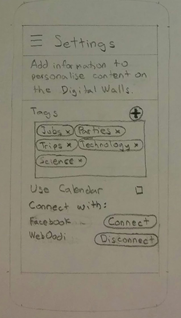 Settings
Add information to
personalise content on
the Digital Walls.
Tags
Jobs x Parties x
Trips x Technology x
Science x
Use Calendar
Connect with:
Facebook Connect
WebOodi Disconnect